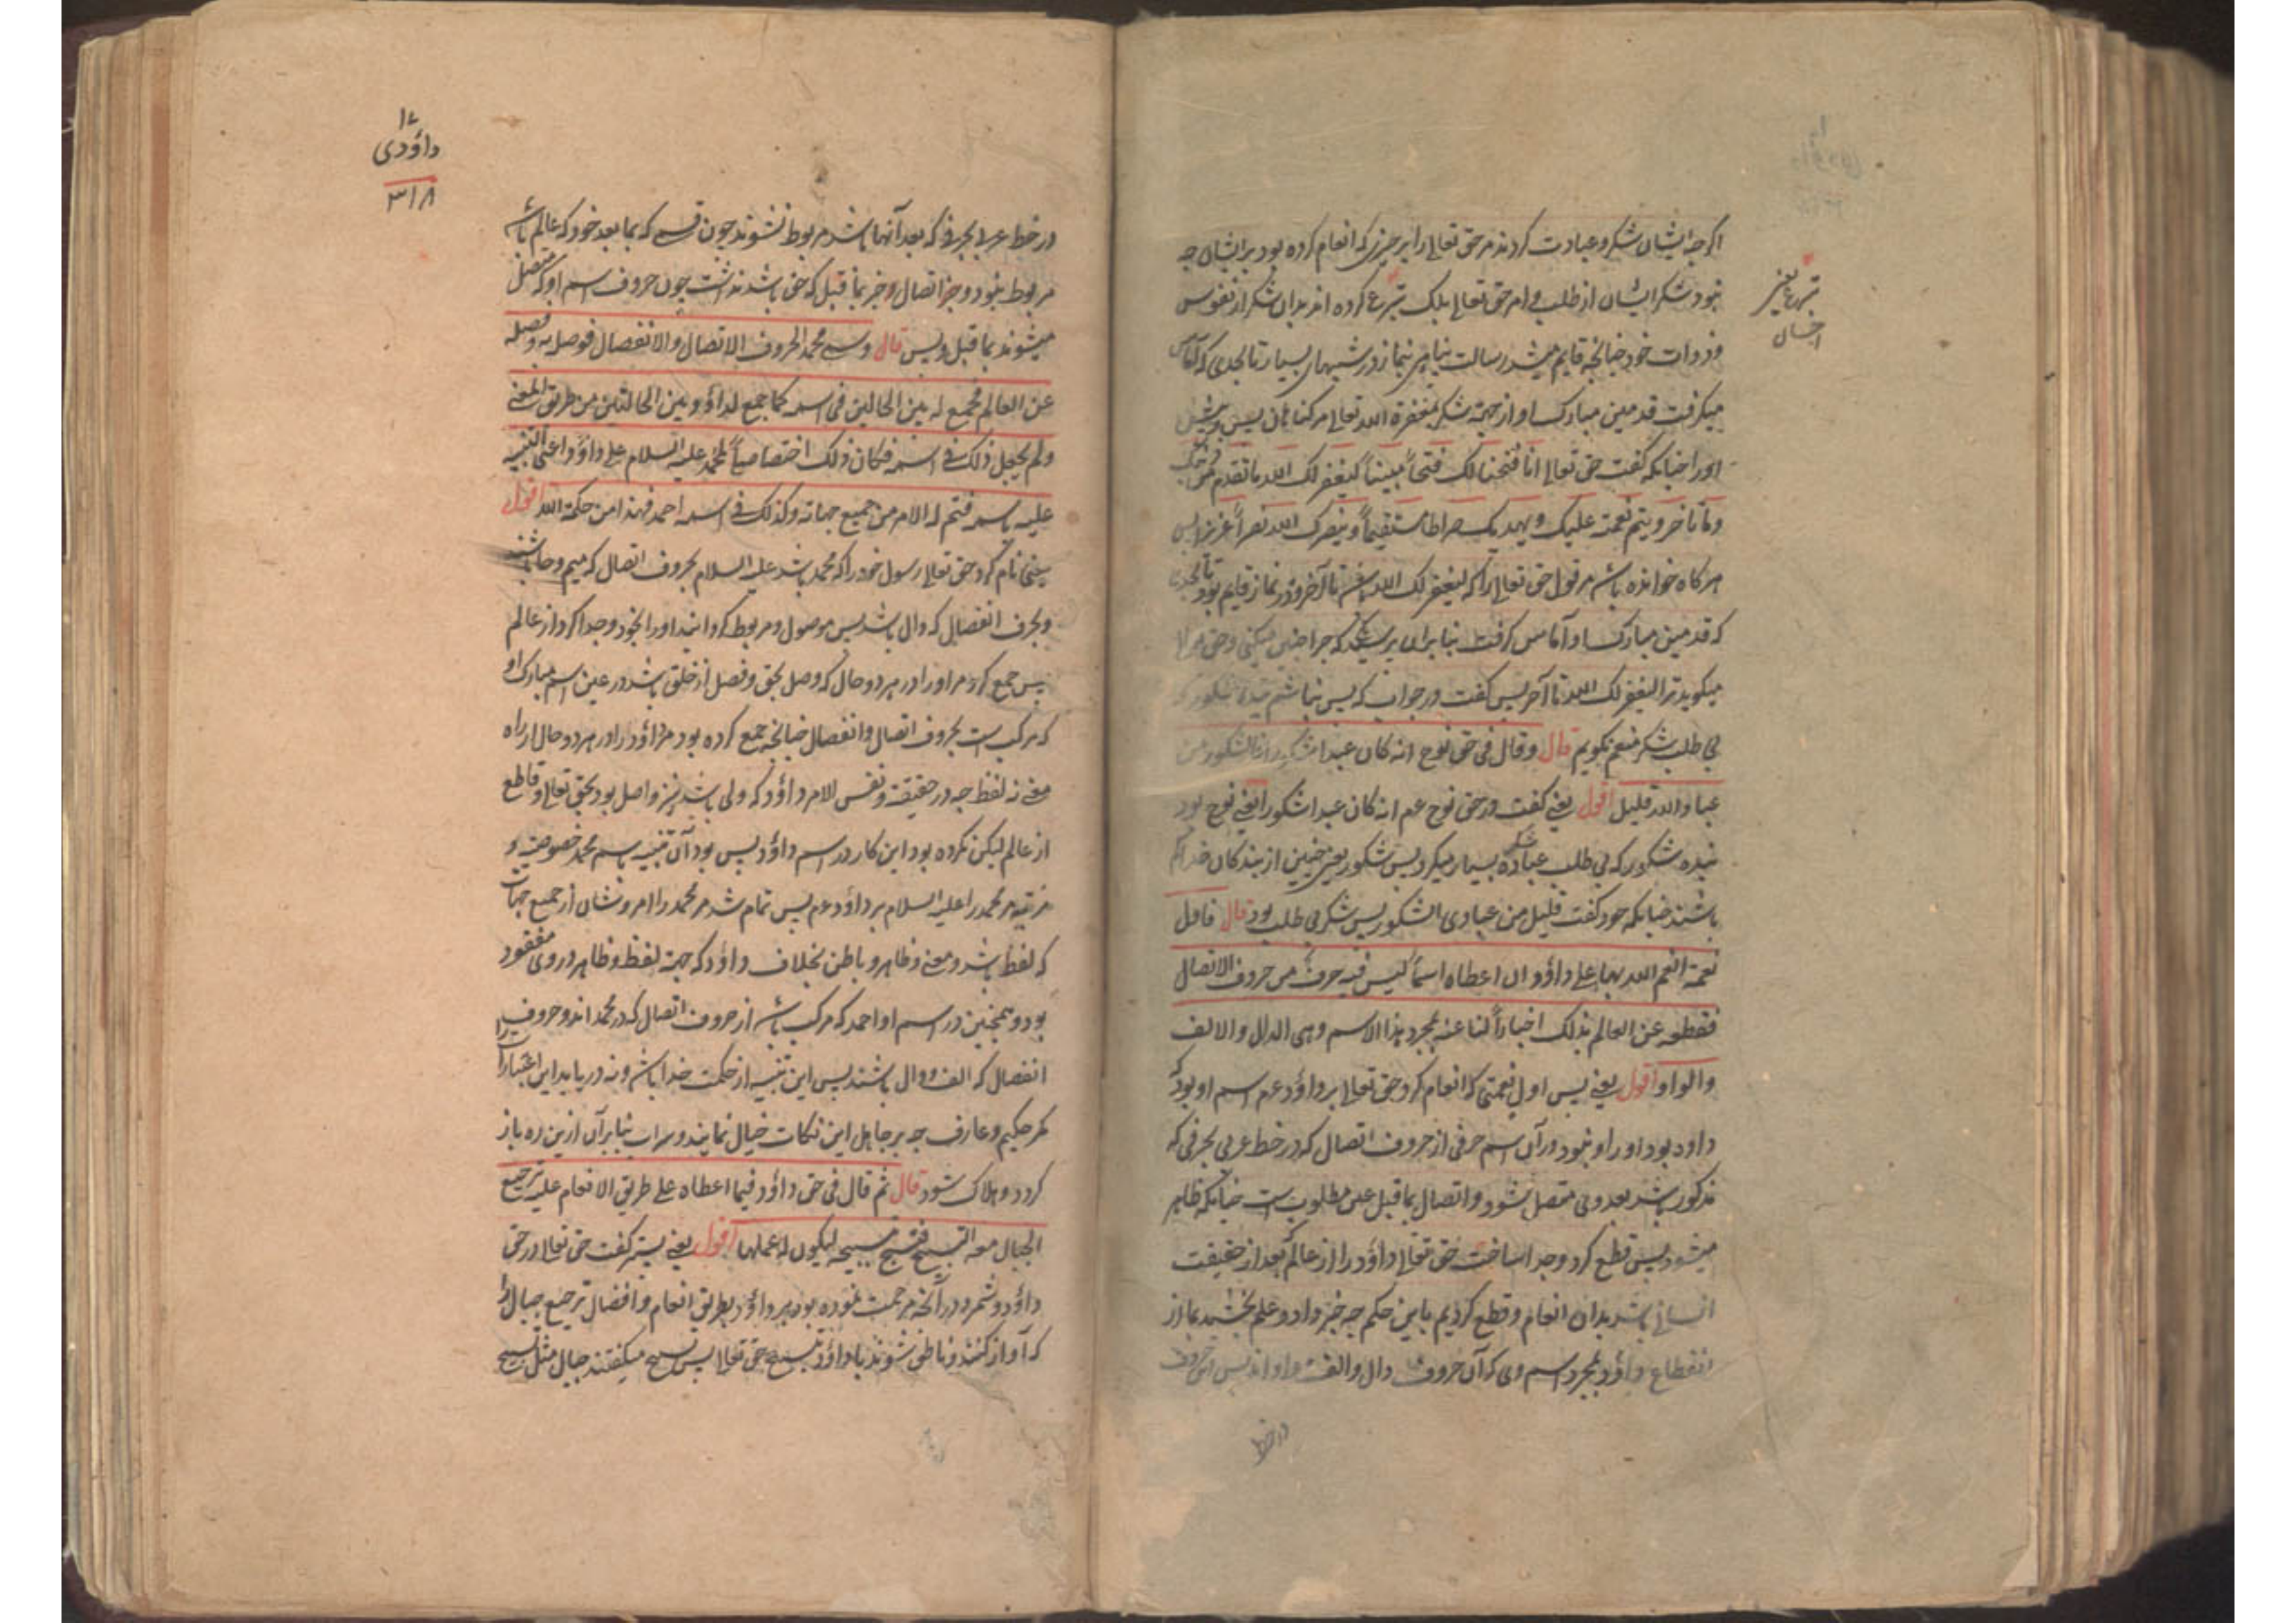 اکرچه ایشان شکر و عبادت کردند مر حق تعالی را بر چیزی که انعام کرده بود بر ایشان چه
نبود شکر ایشان از طلب و امر حق تعالی بلک تبرع کرده اند بدان شکر از نفوس
و ذوات خود چنانچه قایم میشد رسالت پناهی بنماز در شبهای بسیار تا بحدی که آماس
میکرفت قدمین مبارک او از جهة شکر بمغفرة الله تعالی مر کناهان پس و پیش
او را چنانکه کفت حق تعالی انا فتحنا لک فتحاً مبیناً لیغفر لک الله ما تقدم من ذنبک
وما تاخر ویتم نعمته علیک ویهدیک صراطا مستقیماً وینصرک الله نصراً عزیزا پس
هرکاه خوانده باشد مر قول حق تعالی را که لیغفر لک الله تا آخر و در نماز قایم بود تا بحدی
که قدمین مبارک او آماس کرفت بنا بران پرسیدند که چرا چنین میکنی و حق مر ترا
میکوید ترا لیغفر لک الله تا آخر پس کفت در جواب که پس نباشم بنده شکور که
بی طلب شکر منعم بکویم قال وقال فی حق نوح انه کان عبدا شکورا فالشکور من
عباد الله قلیل اقول یعنی کفت در حق نوح عم انه کان عبدا شکورا یعنی نوح بود
بنده شکور که بی طلب عبادة شکر بسیار میکرد پس شکور یعنی چنین از بندکان خدا کم
باشند چنانکه خود کفت قلیل من عبادی الشکور پس شکر بی طلب بود قال فاول
نعمة انعم الله بها علی داؤد ان اعطاه اسماً لیس فیه حرف من حروف الاتصال
فقطعه عن العالم بذلک اخباراً لنا عنه بمجرد هذا الاسم وهی الدال والالف
والواو اقول یعنی پس اول نعمتی که انعام کرد حق تعالی بر داؤد عم اسم او بود که
داود بود او را و نبود در آن اسم حرفی از حروف اتصال که در خط عربی بحرفی که
مذکور باشد بعد وی متصل شود و اتصال بما قبل عین مطلوبست چنانکه ظاهر
میشود پس قطع کرد و جدا ساخت حق تعالی داؤد را از عالم بعد از حقیقت
انسانی باشد بدان انعام و قطع کردیم باین حکم چه خبر داد و علم بخشید بما از
انقطاع داؤد بمجرد اسم وی که آن حروف دال والف و واو اند پس این حروف
در خط
تبرع بغیر
احسان
۱۷
داؤدی
۳۱۸
در خط عربی بحرفی که بعد آنها باشد مربوط نشوند چون قسمی که بما بعد خود که عالم باشد
مربوط نبود و جز اتصال و خبر بما قبل که حق باشد نداشت چون حروف اسم او که متصل
میشوند بما قبل و بس قال وسمی محمد الحروف الاتصال والانفصال فوصله به وفصله
عن العالم فجمع له بین الحالین فی اسمه کما جمع لداؤد بین الحالتین من طریق المعنی
ولم یجعل ذلک فی اسمه فکان ذلک اختصاصاً لمحمد علیه السلام علی داؤد اعنی التنبیه
علیه باسمه فتم له الامر من جمیع جهاته وکذلک فی اسمه احمد فهذا من حکمة الله اقول
یعنی نام کرد حق تعالی رسول خود را که محمد باشد علیه السلام بحروف اتصال که میم و حا باشند
وبحرف انفصال که دال باشد پس موصول و مربوط کردانید او را بخود و جدا کرد از عالم
پس جمع کرد مر او را در هر دو حال که وصل بحق و فصل از خلق باشد در عین اسم مبارک او
که مرکبست بحروف اتصال و انفصال چنانچه جمع کرده بود مر داؤد را در هر دو حال از راه
معنی نه لفظ چه در حقیقت و نفس الامر داؤد که ولی باشد نیز واصل بود بحق تعالی و قاطع
از عالم لیکن نکرده بود این کار در اسم داؤد پس بود آن تنبیه باسم محمد خصوصیة و
مرتبه مر محمد را علیه السلام بر داؤد عم پس تمام شد مر محمد را امر و شان از جمیع جهات
که لفظ باشد و معنی و ظاهر و باطن بخلاف داؤد که جهة لفظ و ظاهر در وی مفقود
بود و همچنین در اسم او احمد که مرکب باشد از حروف اتصال که در محمد اند و حروف
انفصال که الف و دال باشند پس این تنبیه از حکمت خدا باشد و نه دریابد این اعتبارات را
مکر حکیم و عارف چه بر جاهل این نکات خیال نمایند و سراب بنا برآن ازین ره باز
کردد و هلاک شود قال ثم قال فی حق داؤد فیما اعطاه علی طریق الانعام علیه ترجیع
الجبال معه التسبیح فتسبح بتسبیحه لیکون له عملها اقول یعنی پستر کفت حق تعالی در حق
داؤد و شمرد در آنچه مرحمت نموده بود بر داؤد بطریق انعام و افضال ترجیع جبال را
که آواز کنند و ناطق شوند با داؤد بتسبیح حق تعالی پس تسبیح میکفتند جبال مثل تسبیح